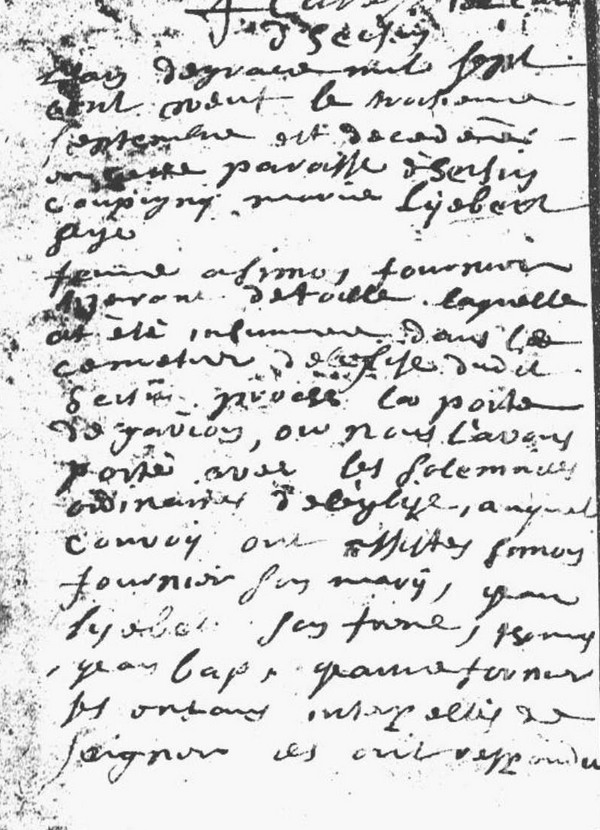 d'Hersin
L'an degrace mil sept
cent neuf le troisieme
septembre est decedeé
en cette paroisse d'hersin
coupigny marie Lijebert
agé
femme a simon, fournier
detoille laquelle
at été inhumeé dans lee
cemetier de leglise dudit
hersin proche la porte
de gavion, ou nous l'avons
porté avec les solemnités
ordinaires de l'eglise, auquel
convoy ont assistés simon
fournier son marÿ, jean
lijebet son frere,
jean bap, jeanne fournier
ses enfans interpellés de
seigner ils ont respondu